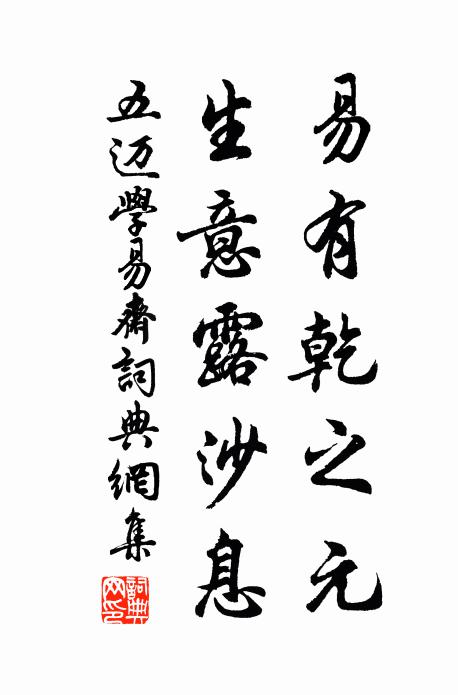 易有乾之元
生意露沙息
五迈學易齋詞典網集
詞典网印